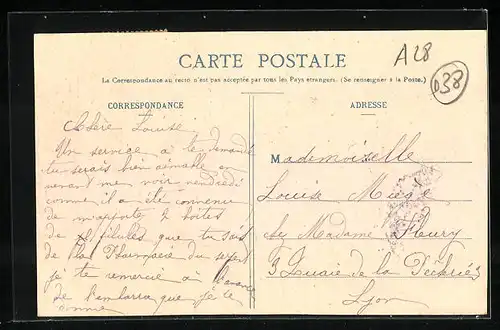 CARTE POSTALE
La Correspondance au recto n'est pas acceptée par tous les Pays étrangers. (Se renseigner à la Poste.)
CORRESPONDANCE
Chère Louise
Un service à te demander
tu serais bien aimable en
venant me voir vendredi
comme il a été convenu
de m'apporter 2 boîtes
de pilules que tu sais
je te remercie à l'avance
de l'embarras que je te
donne
ADRESSE
Mademoiselle
Louise
chez Madame Fleury
3 Quaie de la
Lyon
A28
038